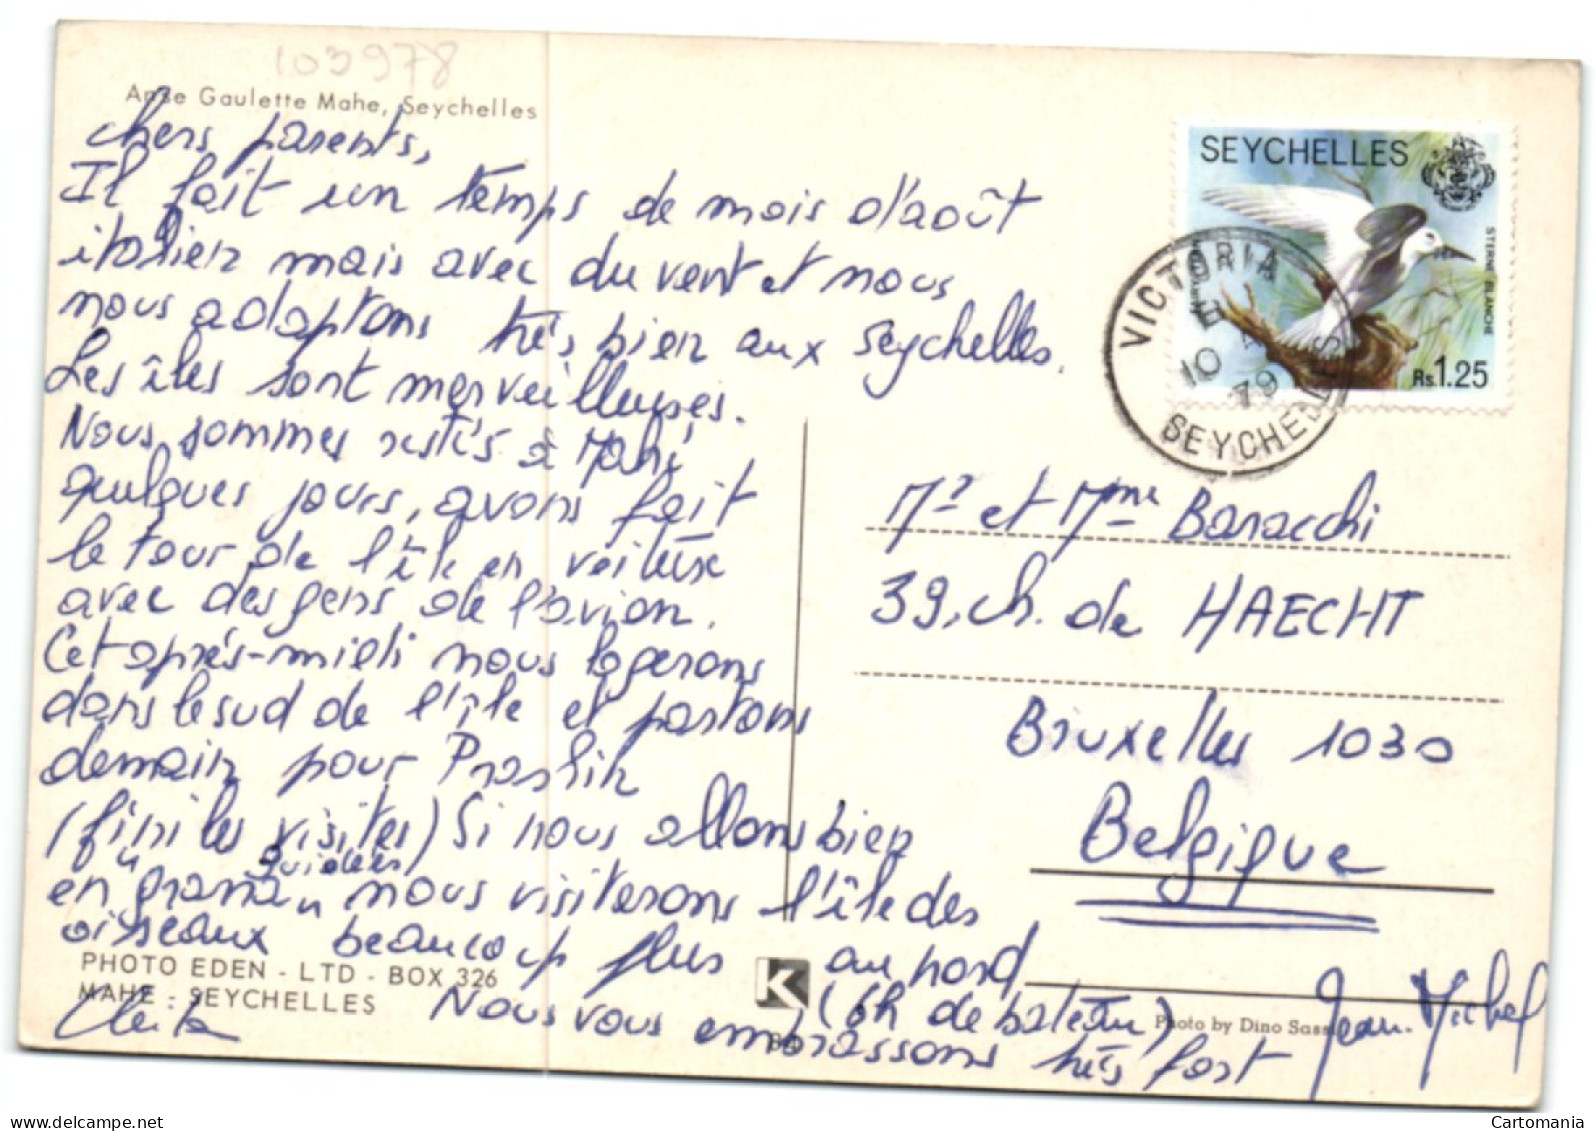 103978
Anse Gaulette Mahe, Seychelles
Chers parents,
Il fait un temps de mois d'août
italien mais avec du vent et nous
nous adaptons très bien aux Seychelles.
Les îles sont merveilleuses.
Nous sommes restés à Mahé
quelques jours, avons fait
le tour de l'île en voiture
avec des gens de l'avion.
Cet après-midi nous logerons
dans le sud de l'île et partons
demain pour Praslin
(fini les visites) Si nous allons bien
guidées
en "grana" nous visiterons l'île des
oiseaux beaucoup plus au nord
(6h de bateau)
Nous vous embrassons très fort
Jean-Michel
PHOTO EDEN - LTD - BOX 326
MAHE : SEYCHELLES
K
Photo by Dino Sassi
SEYCHELLES
STERNE BLANCHE
Rs.1.25
VICTORIA
10
79
SEYCHELLES
Mr et Mme Baracchi
39, ch. de HAECHT
Bruxelles 1030
Belgique
www.delcampe.net
Cartomania